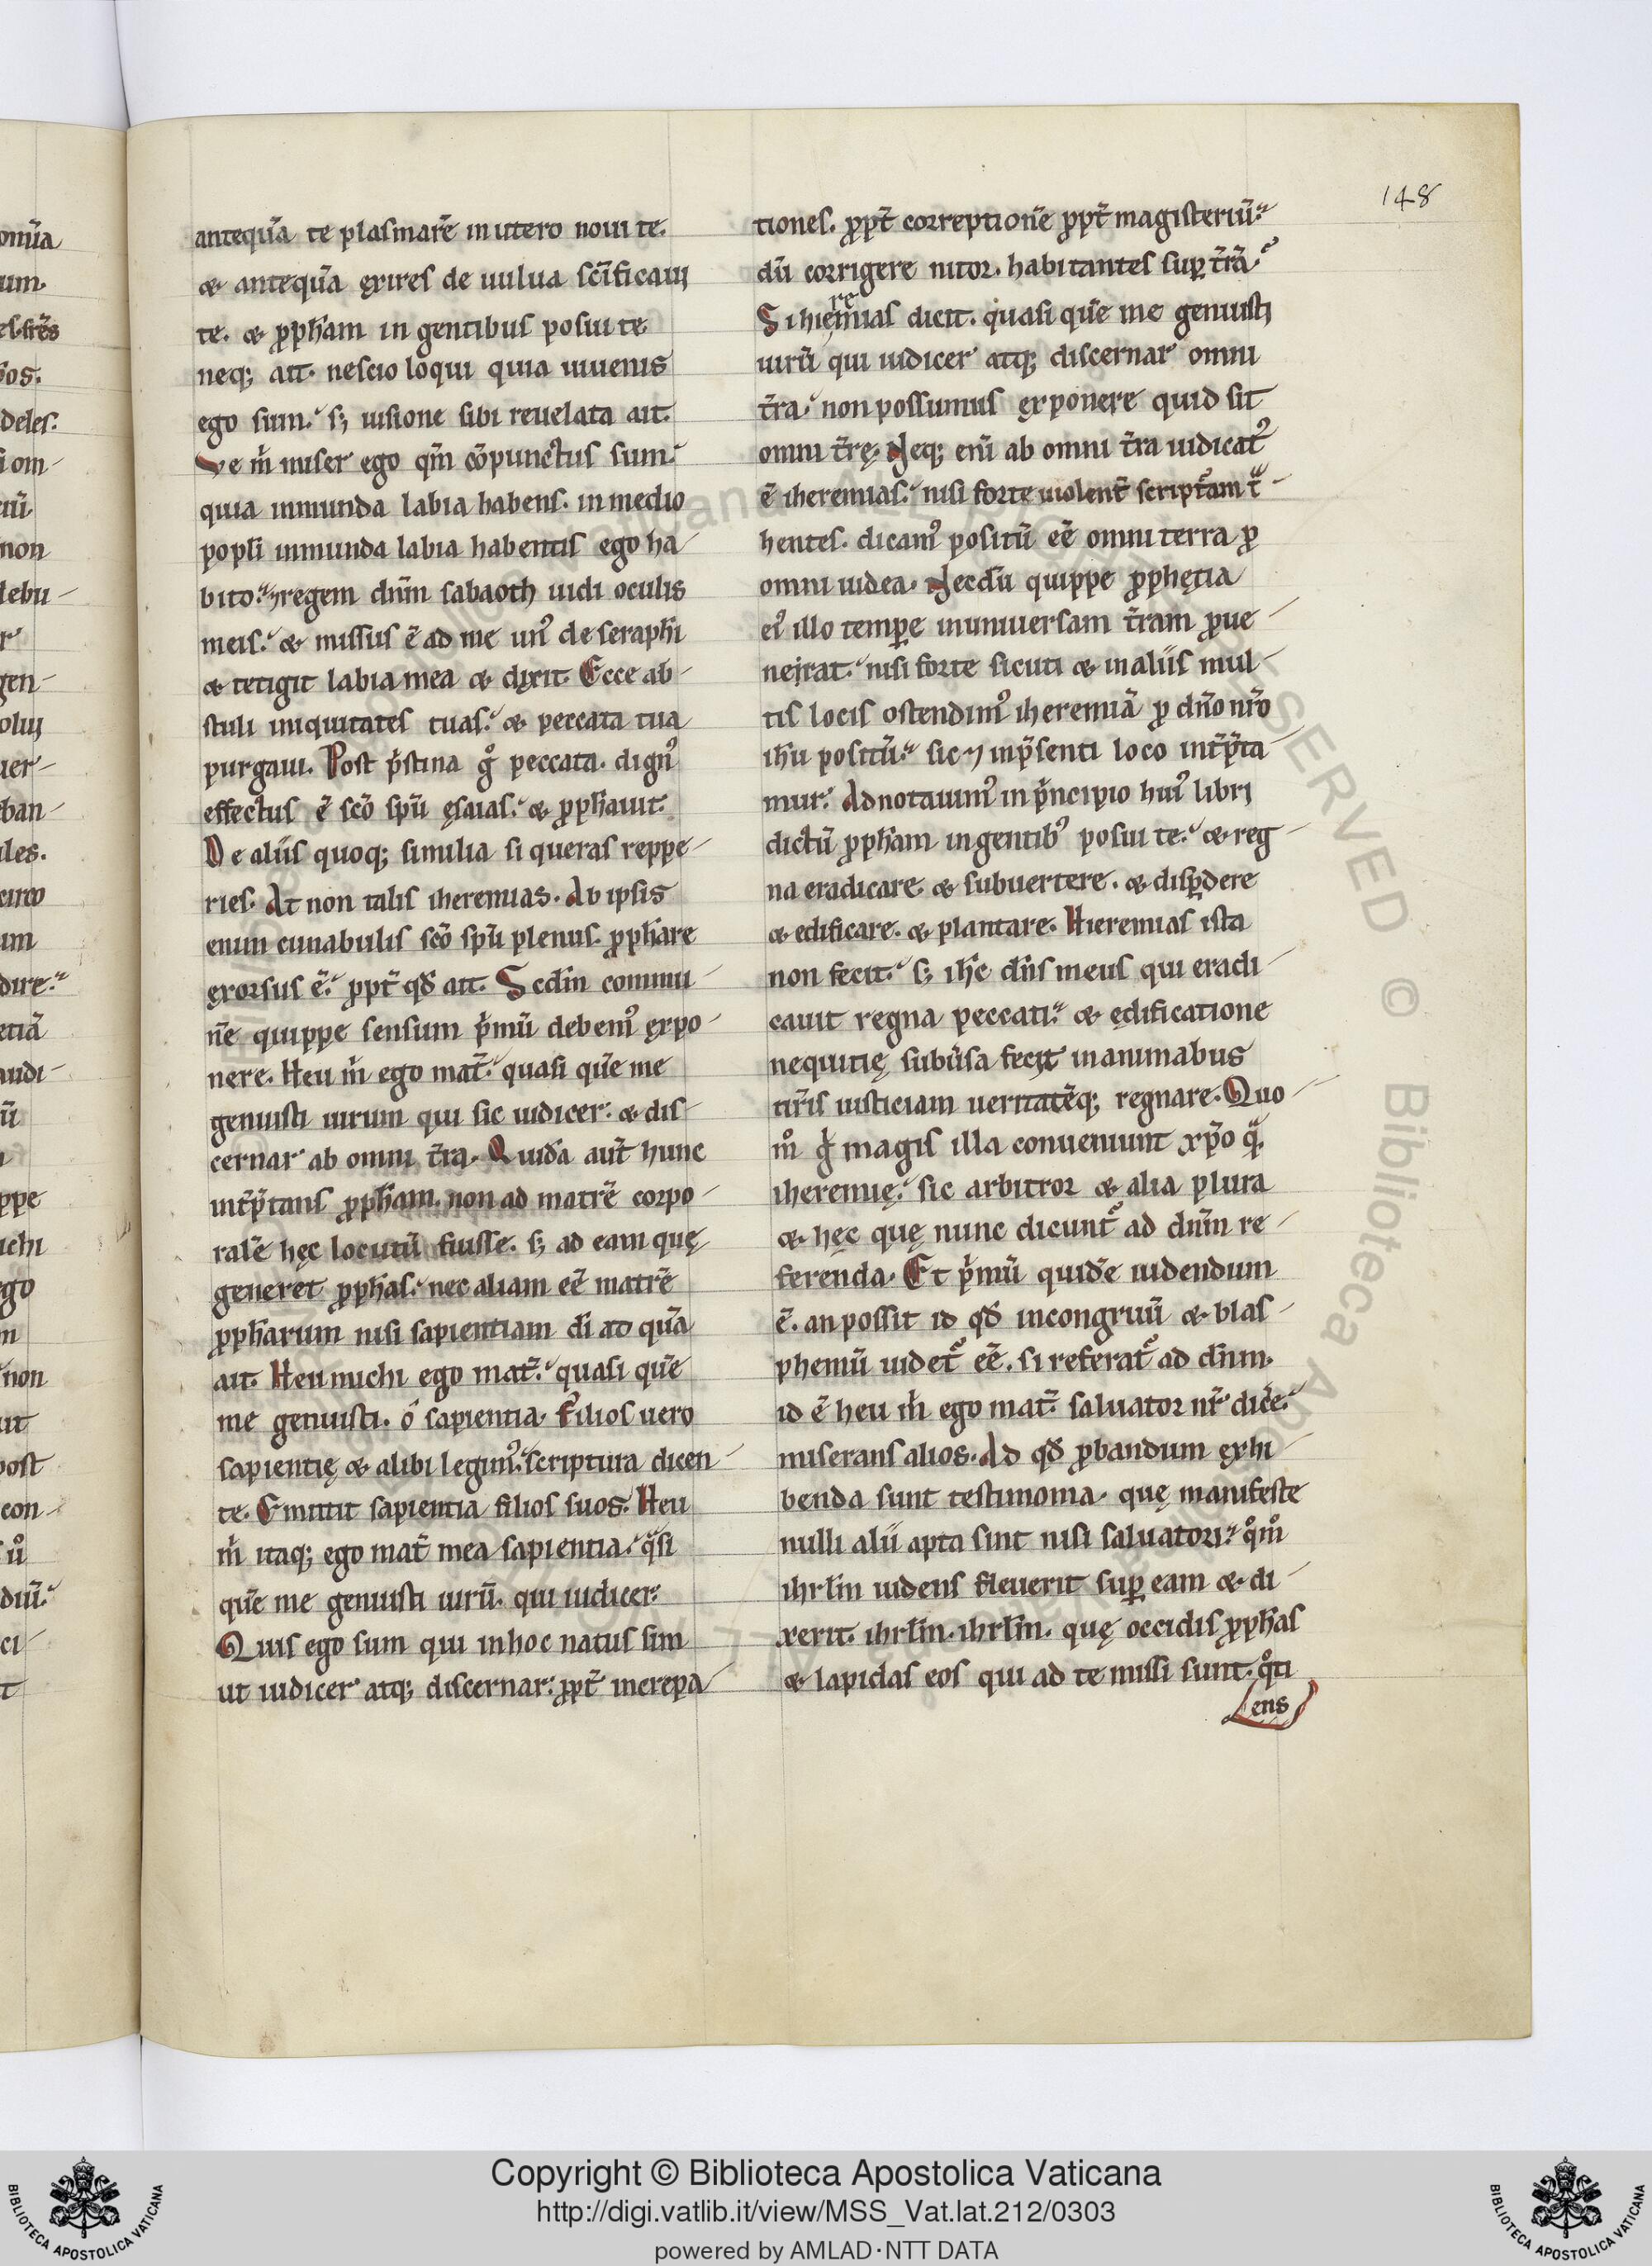 148
antequā te plasmarē in utero noui te.
& antequā ęxires de uulua scīficaui
te. & ꝓpħam in gentibus posui te
neq; ait. nescio loqui quia iuuenis
ego sum. s; uisione sibi reuelata ait.
Ve m̄ miser ego qm̄ cōpunctus sum.
quia inmunda labia habens. in medio
popli inmunda labia habentis ego ha
bito. ⁊ regem dnm̄ sabaoth uidi oculis
meis. & missus ē ad me unꝰ de seraphī
& tetigit labia mea & dixit. Ecce ab
stuli iniquitates tuas. & peccata tua
purgaui. Post p̄stina gͦ peccata. dignꝰ
effectus ē scō spū ęsaias. & ꝓpħauit.
De aliis quoq; similia si queras reppe
ries. At non talis iheremias. Ab ipsis
enim cunabulis scō spū plenus. ꝓpħare
exorsus ē. ꝓpt̄ qđ ait. Scđm commu
nē quippe sensum p̄mū debemꝰ expo
nere. Heu m̄ ego mat̄. quasi quē me
genuisti uirum qui sic iudicer. & dis
cernar ab omni t̄ra. Quidā aut̄ hunc
int̄p̄tans ꝓpħam. non ad matrē corpo
ralē hęc locutū fuisse. s; ad eam quę
generet ꝓpħas. nec aliam eē matrē
ꝓpħarum nisi sapientiam dī ad quā
ait. Heu michi ego mat̄. quasi quē
me genuisti. ó sapientia. Filios uero
sapientię & alibi legimꝰ. scriptura dicen
te. Emittit sapientia filios suos. Heu
m̄ itaq; ego mat̄ mea sapientia. qᵃsi
quē me genuisti uirū. qui iudicer.
Quis ego sum qui in hoc natus sim
ut iudicer atq; discernar. ꝓpt̄ increpa
tiones. ꝓpt̄ correptionē ꝓpt̄ magisteriū.
dū corrigere nitor. habitantes suꝑ t̄rā.
re
Si hiemias dicit. quasi quē me genuisti
uirū qui iudicer atq; discernar omni
t̄ra. non possumus exponere quid sit
omni t̄rę. Neq; enī ab omni t̄ra iudicatꝰ
ē iheremias. nisi forte uiolent̄ scripturam tᵃ
hentes. dicamꝰ positū eē omni terra ꝓ
omni iudea. Necdū quippe ꝓphętia
eiꝰ illo tempore in uniuersam t̄ram ꝓue
nerat. nisi forte sicuti & in aliis mul
tis locis ostendimꝰ iheremiā ꝓ dn̄o nr̄o
ihu positū. sic ⁊ in p̄senti loco int̄p̄ta
mur. Adnotauimꝰ in p̄ncipio huiꝰ libri
dictū ꝓpħam in gentibꝰ posui te. & reg
na eradicare. & subuertere. & disꝑdere
& edificare. & plantare. Hieremias ista
non fecit. s; ihc̄ dn̄s meus qui eradi
cauit regna peccati. & ędificatione
nequitię subūsa fecit in animabus
nr̄is iusticiam ueritatēq; regnare. Quo
mͦ gͥ magis illa conueniunt xp̄o qᵃ
iheremię. sic arbitror & alia plura
& hęc quę nunc dicunt᷑ ad dnm̄ re
ferenda. Et p̄mū quidē uidendum
ē. an possit id qđ incongruū & blas
phemū uidet᷑ eē. si referat᷑ ad dnm̄.
id ē heu m̄ ego mat̄ saluator nr̄ dicē.
miserans alios. Ad qđ ꝓbandum exhi
benda sunt testimonia. quę manifeste
nulli alii apta sint nisi saluatori. qͦmͦ
ihrlm̄ uidens fleuerit suꝑ eam & di
xerit. ihrlm̄. ihrlm̄. quę occidis ꝓpħas
& lapidas eos qui ad te missi sunt. qͦti
ens
Copyright © Biblioteca Apostolica Vaticana
http://digi.vatlib.it/view/MSS_Vat.lat.212/0303
powered by AMLAD·NTT DATA
BIBLIOTECA APOSTOLICA VATICANA
BIBLIOTECA APOSTOLICA VATICANA